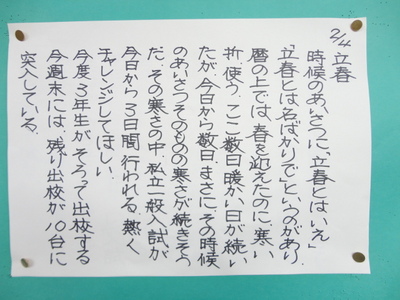 2/4 立春
時候のあいさつに、「立春とはいえ」
「立春とは名ばかりで」というのがあり、
暦の上では、春を迎えたのに、寒い
折、使う。ここ数日暖かい日が続い
たが、今日から数日、まさに、その時候
のあいさつそのものの寒さが続きそう
だ。その寒さの中、私立一般入試が
今日から3日間行われる。熱く
チャレンジしてほしい。
今度3年生がそろって出校する
今週末には、残り出校が10台に
突入している。